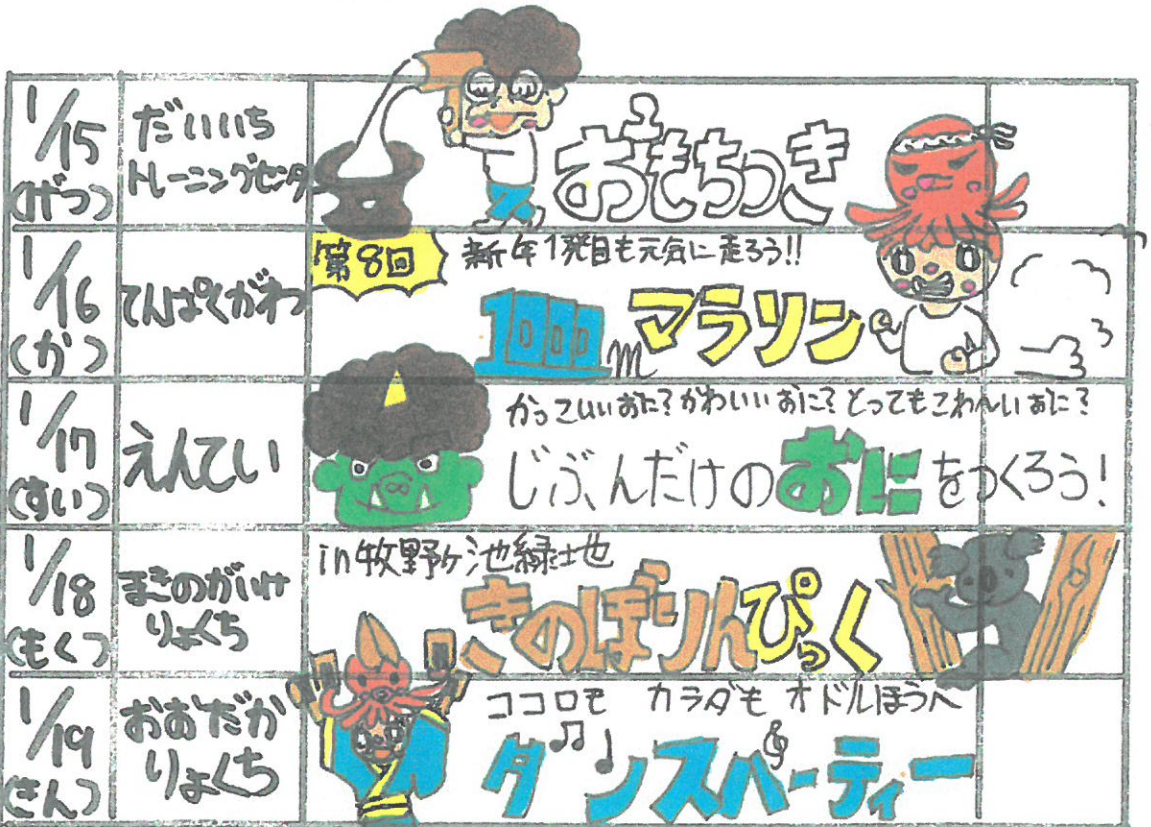 1/15
(げつ)
だいいち
トレーニングセンター
おもちつき
1/16
(か)
てんぱくがわ
第8回
新年1発目も元気に走ろう!!
1000mマラソン
1/17
(すい)
えんてい
かっこいいおに?かわいいおに?とってもこわ〜いおに?
じぶんだけのおにをつくろう!
1/18
(もく)
まきのがいけ
りょくち
in牧野ヶ池緑地
きのぼりんぴっく
1/19
(きん)
おおだか
りょくち
ココロモ カラダも オドルほうへ
ダンスパーティー